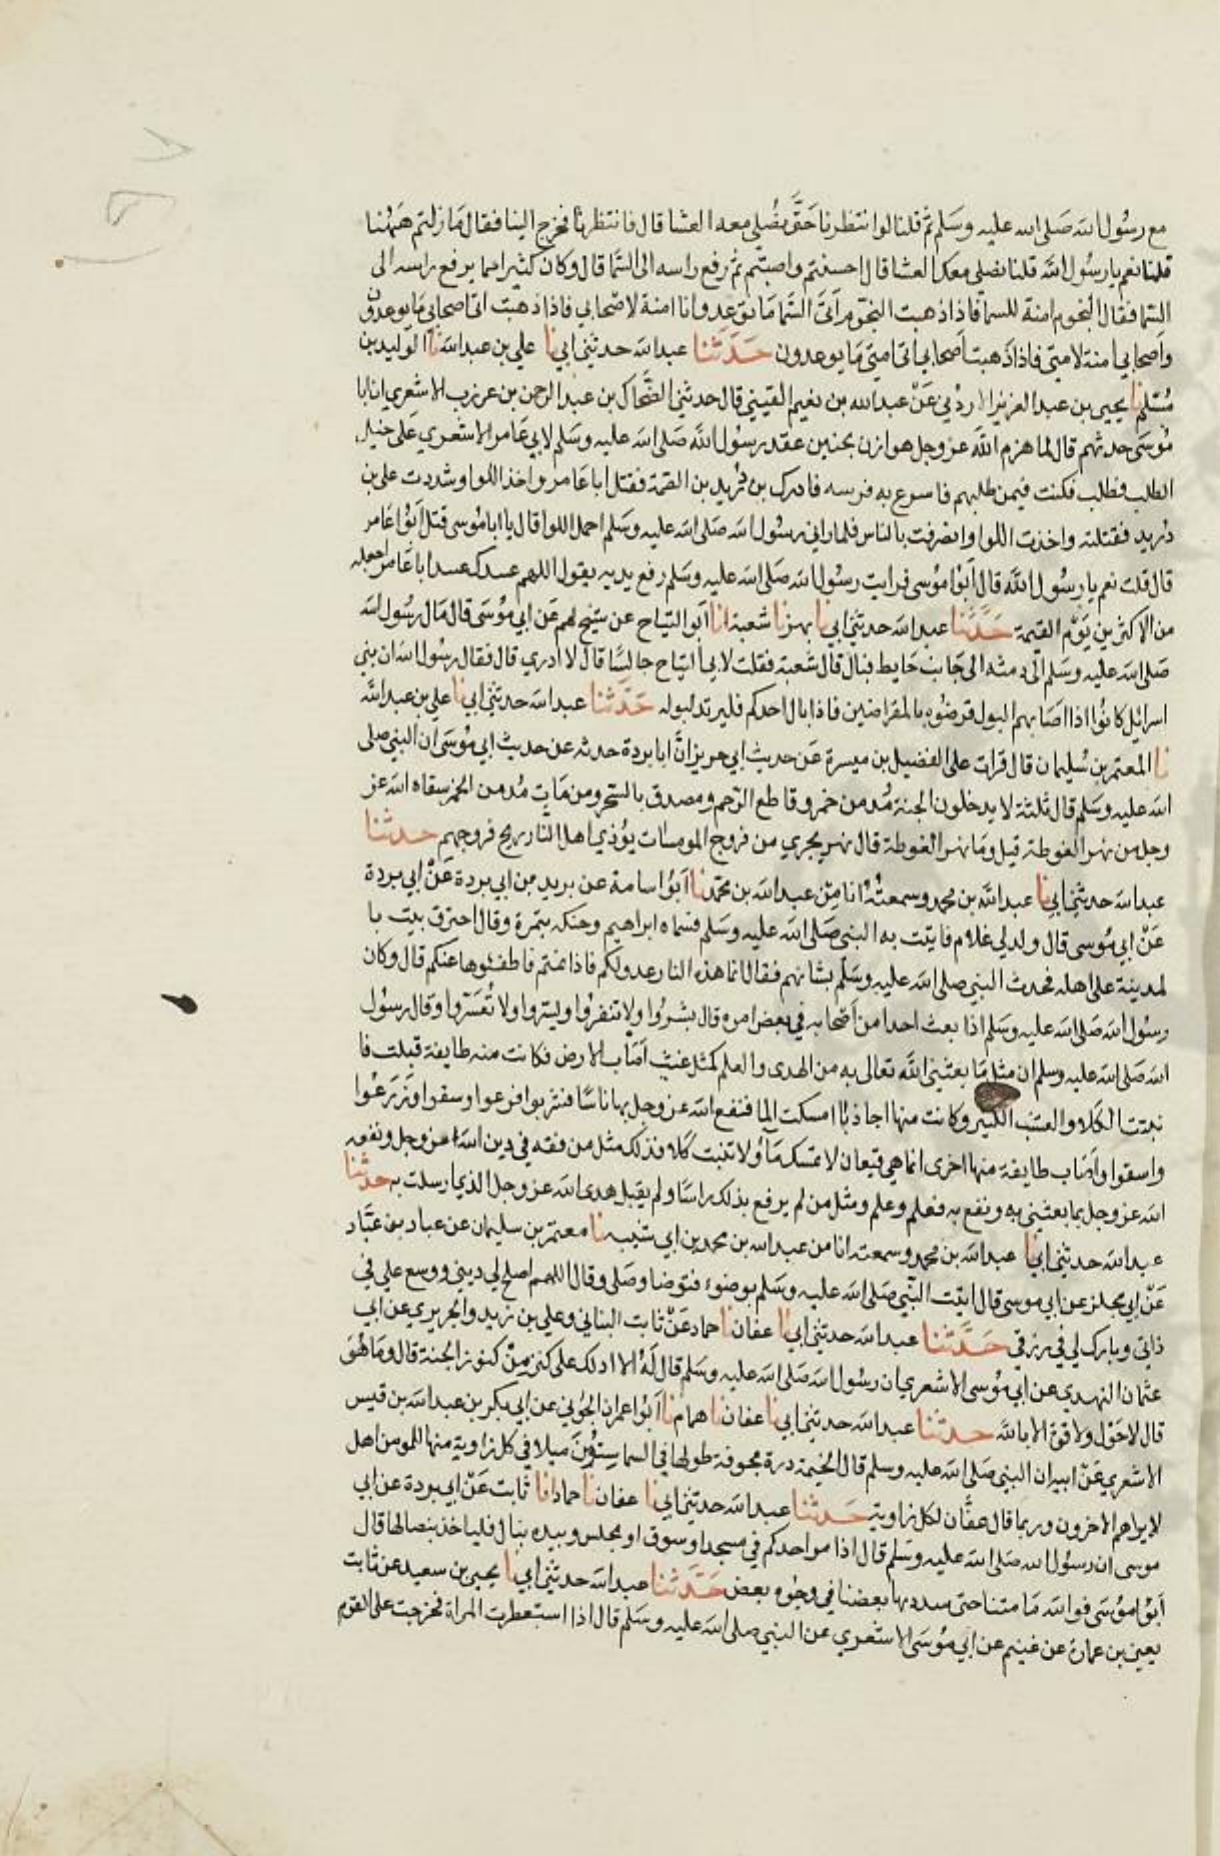 مع رسول الله صلى الله عليه وسلم ثم قلنا لوا انتظرنا حتى نصلي معه العشا قال فانتظرنا فخرج الينا فقال ما زلتم ههنا
قلنا نعم يا رسول الله قلنا نصلي معك العشا قال احسنتم واصبتم ثم رفع راسه الى السما قال وكان كثيرا مما يرفع راسه الى
السما فقال النجوم امنة للسما فاذا ذهبت النجوم اتى السما ما توعد وانا امنة لاصحابي فاذا ذهبت اتى اصحابي ما يوعدون
واصحابي امنة لامتي فاذا ذهبت اصحابي اتى امتي ما يوعدون حدثنا عبد الله حدثني ابي نا علي بن عبد الله نا الوليد بن
مسلم نا يحيى بن عبد العزيز الاردني عن عبد الله بن نعيم القيني قال حدثني الضحاك بن عبد الرحمن بن عرزب الاشعري ان ابا
موسى حدثهم قال لما هزم الله عز وجل هوازن بحنين عقد رسول الله صلى الله عليه وسلم لابي عامر الاشعري على خيل
الطلب فطلب فكنت فيمن طلبهم فاسرع به فرسه فادرك بن دريد بن الصمة فقتل ابا عامر واخذ اللوا وشددت على بن
دريد فقتلته واخذت اللوا وانصرفت بالناس فلما راني رسول الله صلى الله عليه وسلم احمل اللوا قال يا ابا موسى قتل ابوا عامر
قال قلت نعم يا رسول الله قال ابوا موسى فرايت رسول الله صلى الله عليه وسلم رفع يديه يقول اللهم عبدك عبيدا ابا عامر اجعله
من الاكثرين يوم القيمة حدثنا عبد الله حدثني ابي نا بهز نا شعبة انا ابو التياح عن شيخ لهم عن ابي موسى قال مال رسول الله
صلى الله عليه وسلم الى دمثه الى جانب حايط فبال قال شعبة فقلت لابي التياح جالسا قال لا ادري قال فقال رسول الله ان بني
اسرائل كانوا اذا اصابهم البول قرضوه بالمقراضين فاذا بال احدكم فليرتد لبوله حدثنا عبد الله حدثني ابي نا علي بن عبد الله
نا المعتمر بن سليمان قال قرات على الفضيل بن ميسرة عن حديث ابي حريز ان ابا بردة حدثه عن حديث ابي موسى ان النبي صلى
الله عليه وسلم قال ثلثة لا يدخلون الجنة مدمن خمر وقاطع الرحم ومصدق بالسحر ومن مات مدمن الخمر سقاه الله عز
وجل من نهر الغوطة قيل وما نهر الغوطة قال نهر يجري من فروج المومسات يؤذي اهل النار ريح فروجهم حدثنا
عبد الله حدثني ابي نا عبد الله بن محمد وسمعته انا من عبد الله بن محمد نا ابوا اسامة عن بريد بن ابي بردة عن ابي بردة
عن ابي موسى قال ولد لي غلام فاتيت به النبي صلى الله عليه وسلم فسماه ابراهيم وحنكه بتمرة وقال احترق بيت با
لمدينة على اهله فحدث النبي صلى الله عليه وسلم بشانهم فقال انما هذه النار عدو لكم فاذا نمتم فاطفئوها عنكم قال وكان
رسول الله صلى الله عليه وسلم اذا بعث احدا من اصحابه في بعض امره قال بشروا ولا تنفروا ويسروا ولا تعسروا وقال رسول
الله صلى الله عليه وسلم ان مثل ما بعثني الله تعالى به من الهدى والعلم كمثل غيث اصاب الارض فكانت منه طايفة قبلت فا
نبتت الكلا والعشب الكثير وكانت منها اجاذبا امسكت الما فنفع الله عز وجل بها ناسا فشربوا فرعوا وسقوا وزرعوا
واسقوا واصاب طايفة منها اخرى انما هي قيعان لا تمسك ما ولا تنبت كلا فذلك مثل من فقه في دين الله عز وجل ونفعه
الله عز وجل بما بعثني به ونفع به فعلم وعلم ومثل من لم يرفع بذلك راسا ولم يقبل هدى الله عز وجل الذي ارسلت به حدثنا
عبد الله حدثني ابي نا عبد الله بن محمد وسمعته انا من عبد الله بن محمد بن ابي شيبه نا معتمر بن سليمان عن عباد بن عباد
عن ابي مجلز عن ابي موسى قال اتيت النبي صلى الله عليه وسلم بوضوء فتوضا وصلى وقال اللهم اصلح لي ديني ووسع علي في
ذاتي وبارك لي في رزقي حدثنا عبد الله حدثني ابي نا عفان نا حماد عن ثابت البناني وعلي بن زيد والجريري عن ابي
عثمان النهدي عن ابي موسى الاشعري ان رسول الله صلى الله عليه وسلم قال له الا ادلك على كنز من كنوز الجنة قال وما هو
قال لا حول ولا قوة الا بالله حدثنا عبد الله حدثني ابي نا عفان نا همام نا ابوا عمران الجوني عن ابي بكر بن عبد الله بن قيس
الاشعري عن ابيه ان النبي صلى الله عليه وسلم قال الخيمة درة مجوفة طولها في السما ستون ميلا في كل زاوية منها للمومن اهل
لا يراهم الاخرون وربما قال عفان لكل زاوية حدثنا عبد الله حدثني ابي نا عفان نا حماد انا ثابت عن ابي بردة عن ابي
موسى ان رسول الله صلى الله عليه وسلم قال اذا مر احدكم في مسجد او سوق او مجلس وبيده نبال فلياخذ بنصالها قال
ابوا موسى فوالله ما متنا حتى سددها بعضنا في وجوه بعض حدثنا عبد الله حدثني ابي نا يحيى بن سعيد عن ثابت
يعني بن عمارة عن غنيم عن ابي موسى الاشعري عن النبي صلى الله عليه وسلم قال اذا استعطرت المراة فخرجت على القوم